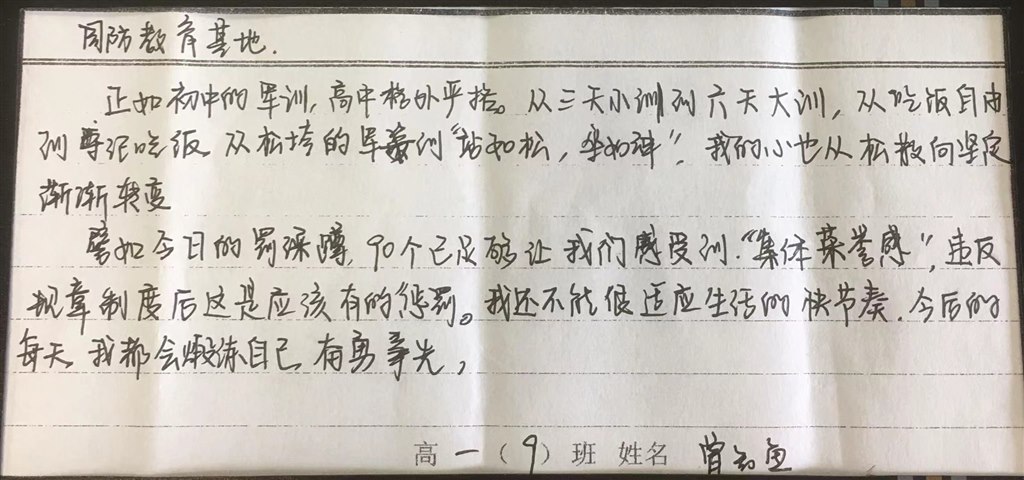 国防教育基地.
正如初中的军训,高中格外严格。从三天小训到六天大训,从吃饭自由
到尊纪吃饭 从松垮的军训“站如松,坐如钟”,我的心也从松散向坚定
渐渐转变
譬如今日的罚深蹲,90个已足够让我们感受到“集体荣誉感”,违反
规章制度后这是应该有的惩罚。我还不能很适应生活的快节奏.今后的
每天 我都会锻炼自己 奋勇争先,
高一(9)班 姓名 曾